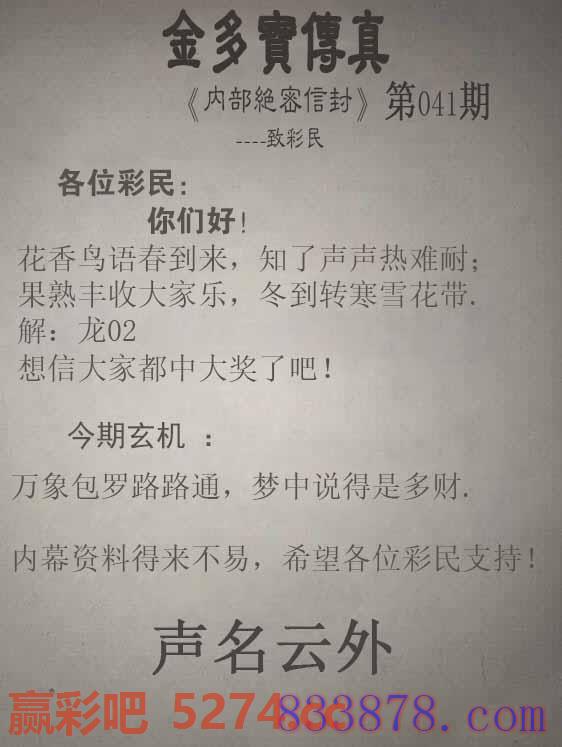 金多寳傳真
《内部絶密信封》第041期
----致彩民
各位彩民:
你们好!
花香鸟语春到来，知了声声热难耐;
果熟丰收大家乐，冬到转寒雪花带.
解：龙02
想信大家都中大奖了吧!
今期玄机 :
万象包罗路路通，梦中说得是多财.
内幕资料得来不易，希望各位彩民支持!
声名云外
赢彩吧 5274.cc
833878.com